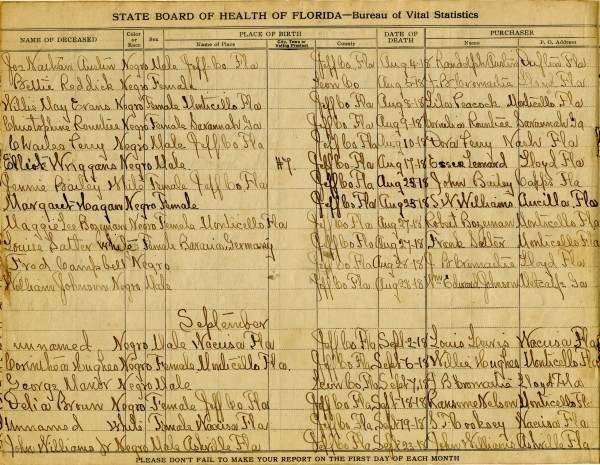 STATE BOARD OF HEALTH OF FLORIDA—Bureau of Vital Statistics
NAME OF DECEASED Color or Race Sex PLACE OF BIRTH DATE OF DEATH PURCHASER
Name of Place City, Town or Voting Precinct County Name P. O. Address
Nathan Austin Negro Male Jeff Co. Fla Jeff Co. Fla Aug 4-18 Randolph Austin Fla
Bettie Reddick Negro Female Leon Co Aug 5-18 T. B. Cromartie Lloyd Fla
Willie May Evans Negro Female Monticello Fla Jeff Co. Fla Aug 8-18 Lila Peacock Monticello Fla
Christophine Rountree Negro Female Savannah Ga Jeff Co Fla Aug 9-18 Cornelia Rountree Savannah Ga
Charles Perry Negro Male Jeff Co. Fla Jeff Co Fla Aug 10-18 Dora Perry Wash Fla
Elliot Wriggans Negro Male #7. Jeff Co Fla Aug 17-18 Essex Leonard Lloyd Fla
Jennie Bailey White Female Jeff Co Fla Jeff Co. Fla Aug 25-18 John Bailey Capps Fla
Margaret Hagan Negro Female Jeff Co. Fla Aug 25-18 S. W. Williams Aucilla Fla
Maggie Lee Bozeman Negro Female Monticello Fla Jeff Co. Fla Aug 27-18 Robert Bozeman Monticello Fla
Louisa Salter White Female Bavaria, Germany Jeff Co Fla Aug 27-18 Frank Salter Monticello Fla
Fred Campbell Negro Jeff Co. Fla Aug 28-18 J. B. Cromartie Lloyd Fla
William Johnson Negro Male Jeff Co. Fla Edward Johnson Metcalf Ga
September
unnamed Negro Male Wacissa Fla Jeff Co. Fla Sept-2-18 Louis Lewis Wacissa Fla
Corinthea Hughes Negro Female Monticello Fla. Jeff Co. Fla Sept-6-18 Willie Hughes Monticello Fla
George Manor Negro Male Leon Co Fla Sept-7-18 J B Cromartie Lloyd Fla
Delia Brown Negro Female Jeff Co. Fla Jeff Co. Fla Sept-18-18 Ransome Nelson Monticello Fla
Unnamed White Female Wacissa Fla Jeff Co. Fla Sept-19-18 S. T. Wacissa Fla
John Williams Jr Negro Male Ashville Fla Jeff Co. Fla Sept 22-18 John Williams Ashville Fla
PLEASE DON'T FAIL TO MAKE YOUR REPORT ON THE FIRST DAY OF EACH MONTH